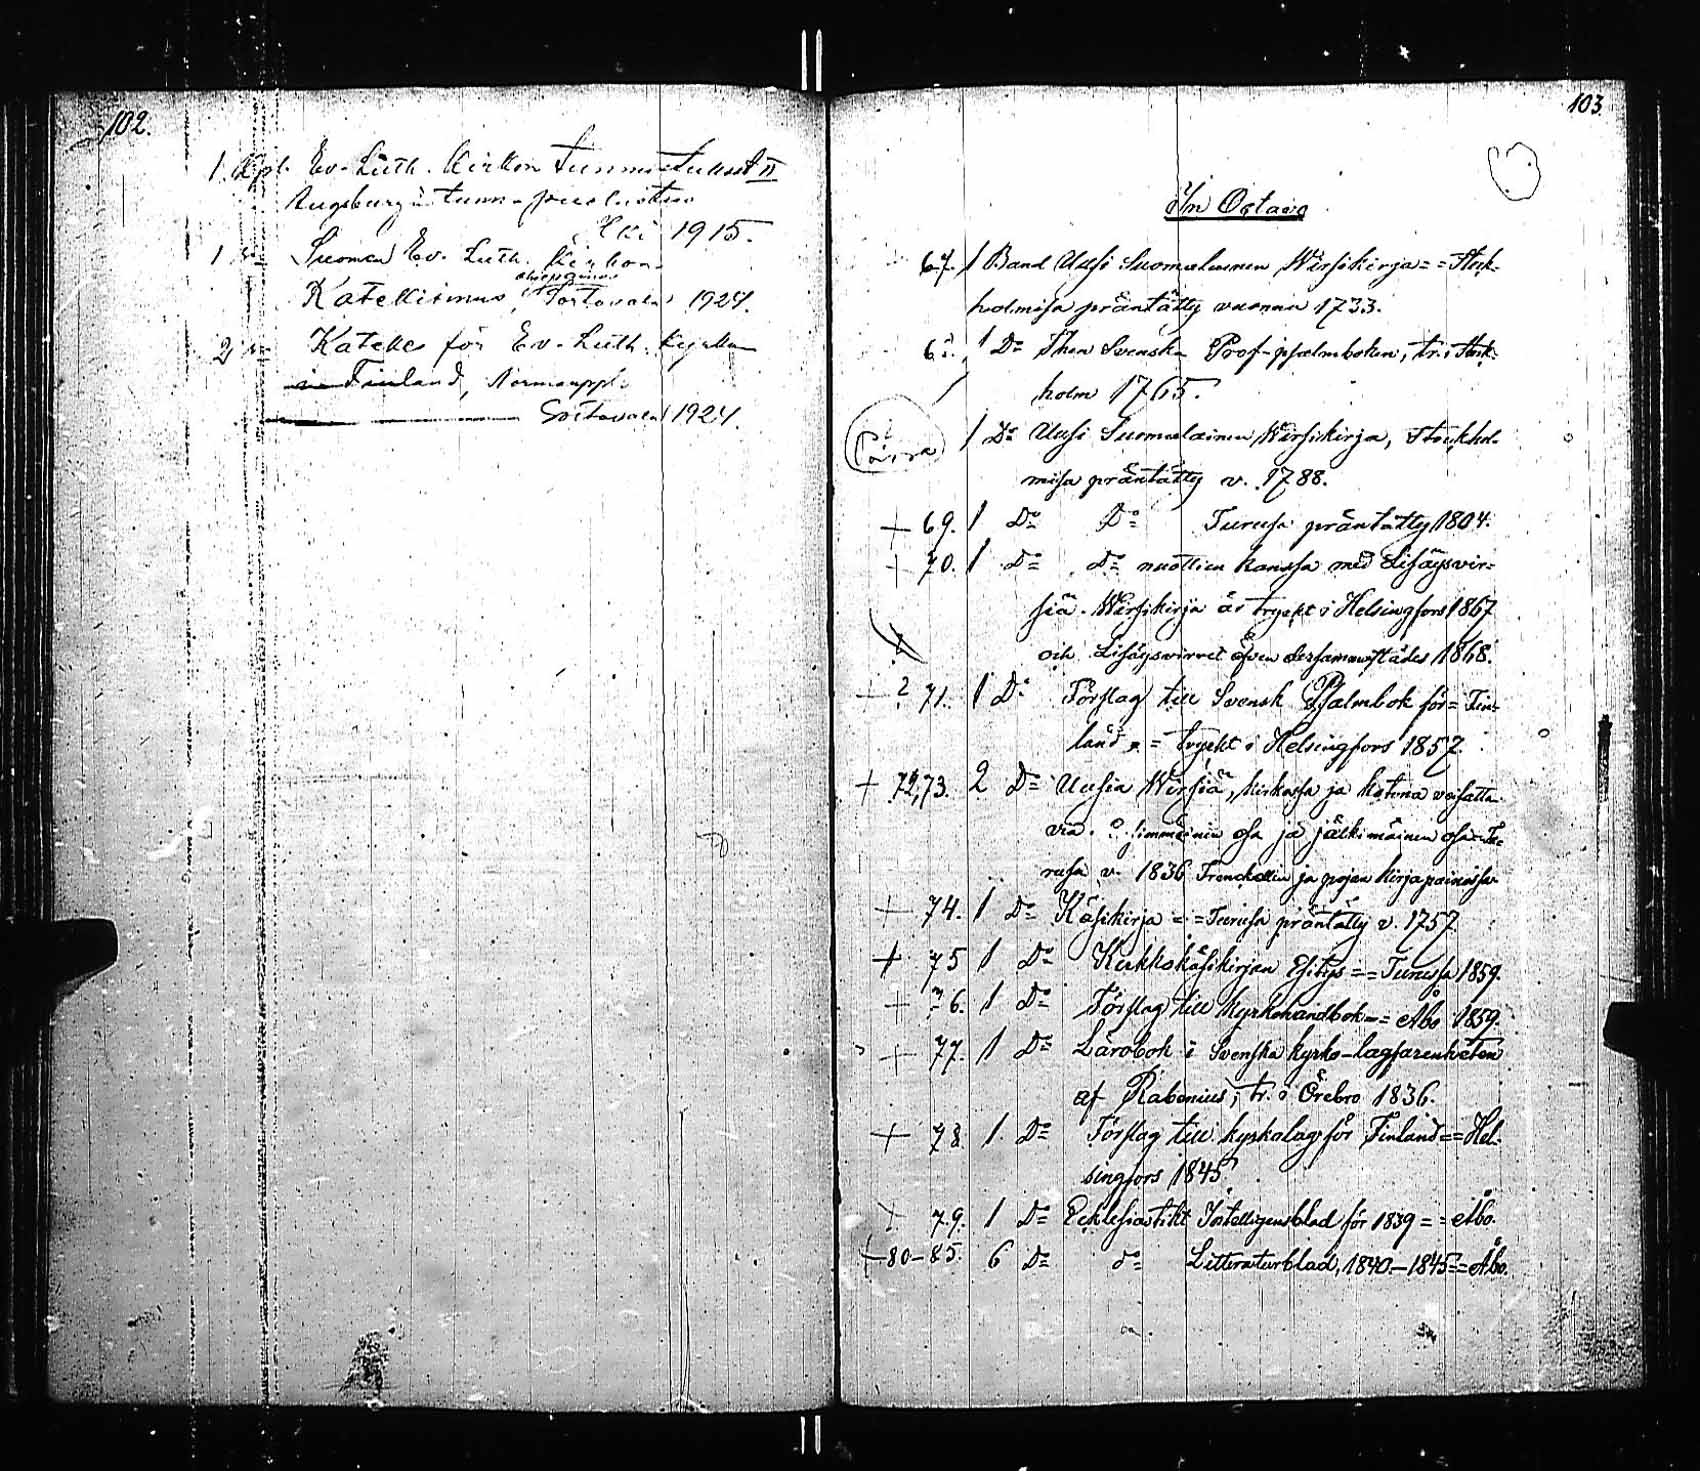 102.
1 Kpl. Ev. Luth. Kirkon Tunnustukset II
Augsburgin tunn-puolustus
Hki 1915.
1 "- Suomen Ev. Luth. Kirkon
Katekismus, Sortavala 1924.
2 "- Katekes för Ev. Luth. Kyrkan
i Finland, Normaluppl.
Sortavala 1924.
103.
In Octavo
67. 1 Band Uusi Suomalainen Wirsikirja = = Stock-
holmisa präntätty vuonna 1733.
1 Do Then Svenska Prof-psalmboken, tr. i Stock-
holm 1765.
1 Do Uusi Suomalainen Wirsikirja, Stockhol-
misa präntätty v. 1788.
+ 69. 1 Do Do Turusa präntätty 1804.
+ 70. 1 Do Do nuottien kanssa med Lisäysvir-
siä. Wirsikirja är tryckt i Helsingfors 1867
och Lisäysvirret äfven dersammastädes 1868.
+ ? 71. 1 Do Förslag till Svensk Psalmbok för = Fin-
land = = tryckt i Helsingfors 1857.
+ 72,73. 2 Do Uusia Wirsiä, kirkossa ja kotona veisatta-
via. Esimmäinen osa ja jälkimäinen osa = Tu-
rusa v. 1836 Frenckellin ja pojan kirjapainossa
+ 74. 1 Do Käsikirja = = Turusa präntätty v. 1757.
+ 75 1 Do Kirkkokäsikirjan Esitys = = Turussa 1859.
+ 76. 1 Do Förslag till kyrkohandbok = = Åbo 1859.
+ 77. 1 Do Lärobok i Svenska kyrko-lagfarenheten
af Rabenius, tr. i Örebro 1836.
+ 78. 1. Do Förslag till kyrkolag för Finland = = Hel-
singfors 1845
+ 79. 1 Do Ecklesiastikt Intelligensblad för 1839 = = Åbo.
+ 80-85. 6 Do do Litteraturblad, 1840-1845 = = Åbo.